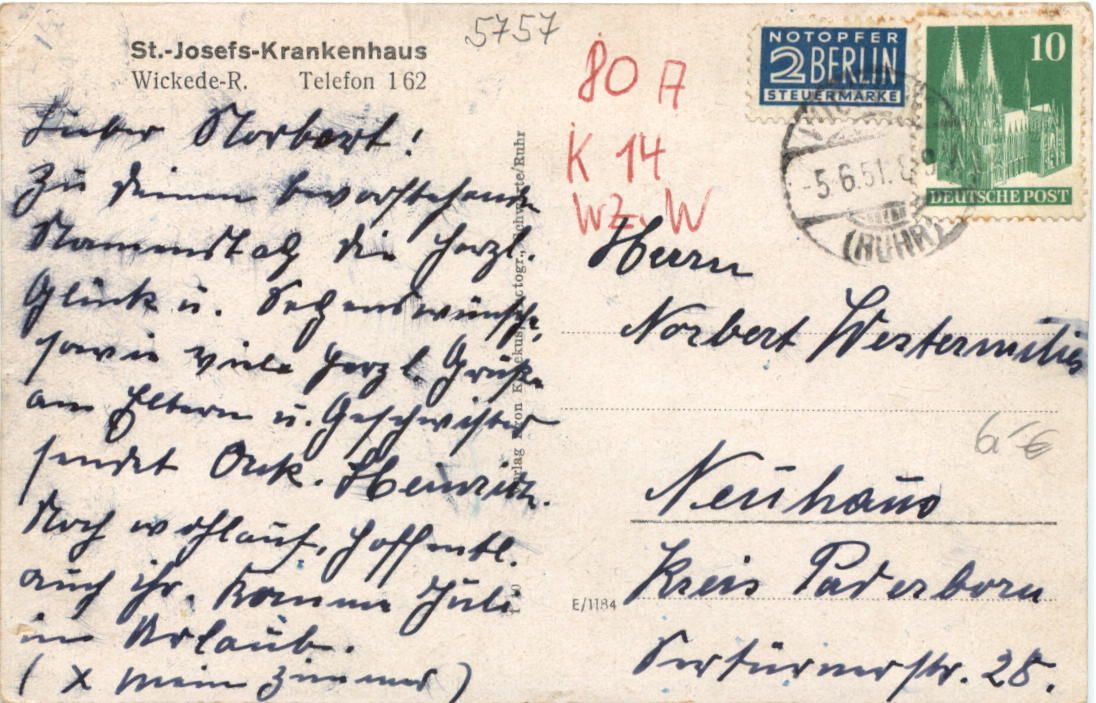 St.-Josefs-Krankenhaus
Wickede-R. Telefon 162
5757
80 A
K 14
WZ. W
NOTOPFER
2 BERLIN
STEUERMARKE
10
DEUTSCHE POST
-5.6.51.
(RUHR)
Lieber Norbert!
Zu deinem bevorstehenden
Namenstag die herzl.
Glück u. Segenswünsche,
sowie viele herzl. Grüße
an Eltern u. Geschwister
sendet Onk. Heinrich.
Noch wohlauf, hoffentl.
auch ihr. Komme Juli
in Urlaub.
(x mein Zimmer)
Verlag Schwerte/Ruhr
E/1184
Herrn
Norbert
Neuhaus
Kreis Paderborn
Sertürnerstr. 25.
6,- €